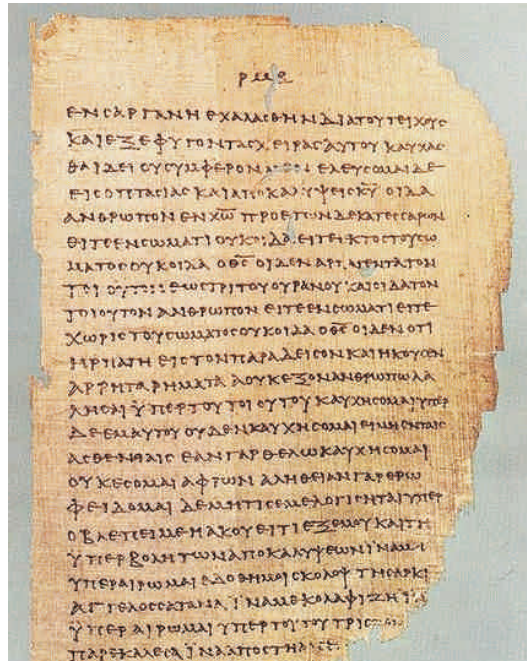 ΡΜΘ
ΕΝ ΣΑΡΓΑΝΗ ΕΧΑΛΑΣΘΗΝ ΔΙΑ ΤΟΥ ΤΕΙΧΟΥΣ
ΚΑΙ ΕΞΕΦΥΓΟΝ ΤΑΣ ΧΕΙΡΑΣ ΑΥΤΟΥ ΚΑΥΧΑΣ
ΘΑΙ ΔΕΙ ΟΥ ΣΥΜΦΕΡΟΝ ΕΛΕΥΣΟΜΑΙ ΔΕ
ΕΙΣ ΟΠΤΑΣΙΑΣ ΚΑΙ ΑΠΟΚΑΛΥΨΕΙΣ ΚΥ ΟΙΔΑ
ΑΝΘΡΩΠΟΝ ΕΝ ΧΩ ΠΡΟ ΕΤΩΝ ΔΕΚΑΤΕΣΣΑΡΩΝ
ΕΙΤΕ ΕΝ ΣΩΜΑΤΙ ΟΥΚ ΟΙΔΑ ΕΙΤΕ ΕΚΤΟΣ ΤΟΥ ΣΩ
ΜΑΤΟΣ ΟΥΚ ΟΙΔΑ Ο ΘΣ ΟΙΔΕΝ ΑΡΠΑΓΕΝΤΑ ΤΟΝ
ΤΟΙΟΥΤΟΝ ΕΩΣ ΤΡΙΤΟΥ ΟΥΡΑΝΟΥ ΚΑΙ ΟΙΔΑ ΤΟΝ
ΤΟΙΟΥΤΟΝ ΑΝΘΡΩΠΟΝ ΕΙΤΕ ΕΝ ΣΩΜΑΤΙ ΕΙΤΕ
ΧΩΡΙΣ ΤΟΥ ΣΩΜΑΤΟΣ ΟΥΚ ΟΙΔΑ Ο ΘΣ ΟΙΔΕΝ ΟΤΙ
ΗΡΠΑΓΗ ΕΙΣ ΤΟΝ ΠΑΡΑΔΕΙΣΟΝ ΚΑΙ ΗΚΟΥΣΕΝ
ΑΡΡΗΤΑ ΡΗΜΑΤΑ Α ΟΥΚ ΕΞΟΝ ΑΝΘΡΩΠΩ ΛΑ
ΛΗΣΑΙ ΫΠΕΡ ΤΟΥ ΤΟΙΟΥΤΟΥ ΚΑΥΧΗΣΟΜΑΙ ΥΠΕΡ
ΔΕ ΕΜΑΥΤΟΥ ΟΥΔΕΝ ΚΑΥΧΗΣΟΜΑΙ ΕΙ ΜΗ ΕΝ ΤΑΙΣ
ΑΣΘΕΝΕΙΑΙΣ ΕΑΝ ΓΑΡ ΘΕΛΩ ΚΑΥΧΗΣΟΜΑΙ
ΟΥΚ ΕΣΟΜΑΙ ΑΦΡΩΝ ΑΛΗΘΕΙΑΝ ΓΑΡ ΕΡΩ
ΦΕΙΔΟΜΑΙ ΔΕ ΜΗ ΤΙΣ ΕΜΕ ΛΟΓΙΣΗΤΑΙ ΥΠΕΡ
Ο ΒΛΕΠΕΙ ΜΕ Η ΑΚΟΥΕΙ ΤΙ ΕΞ ΕΜΟΥ ΚΑΙ ΤΗ
ΫΠΕΡΒΟΛΗ ΤΩΝ ΑΠΟΚΑΛΥΨΕΩΝ ΪΝΑ ΜΗ
ΥΠΕΡΑΙΡΩΜΑΙ ΕΔΟΘΗ ΜΟΙ ΣΚΟΛΟΨ ΤΗ ΣΑΡΚΙ
ΑΓΓΕΛΟΣ ΣΑΤΑΝΑ ΪΝΑ ΜΕ ΚΟΛΑΦΙΖΗ ΪΝΑ
ΫΠΕΡΑΙΡΩΜΑΙ ΥΠΕΡ ΤΟΥΤΟΥ ΤΡΙΣ
ΠΑΡΕΚΑΛΕΣΑ ΪΝΑ ΑΠΟΣΤΗ